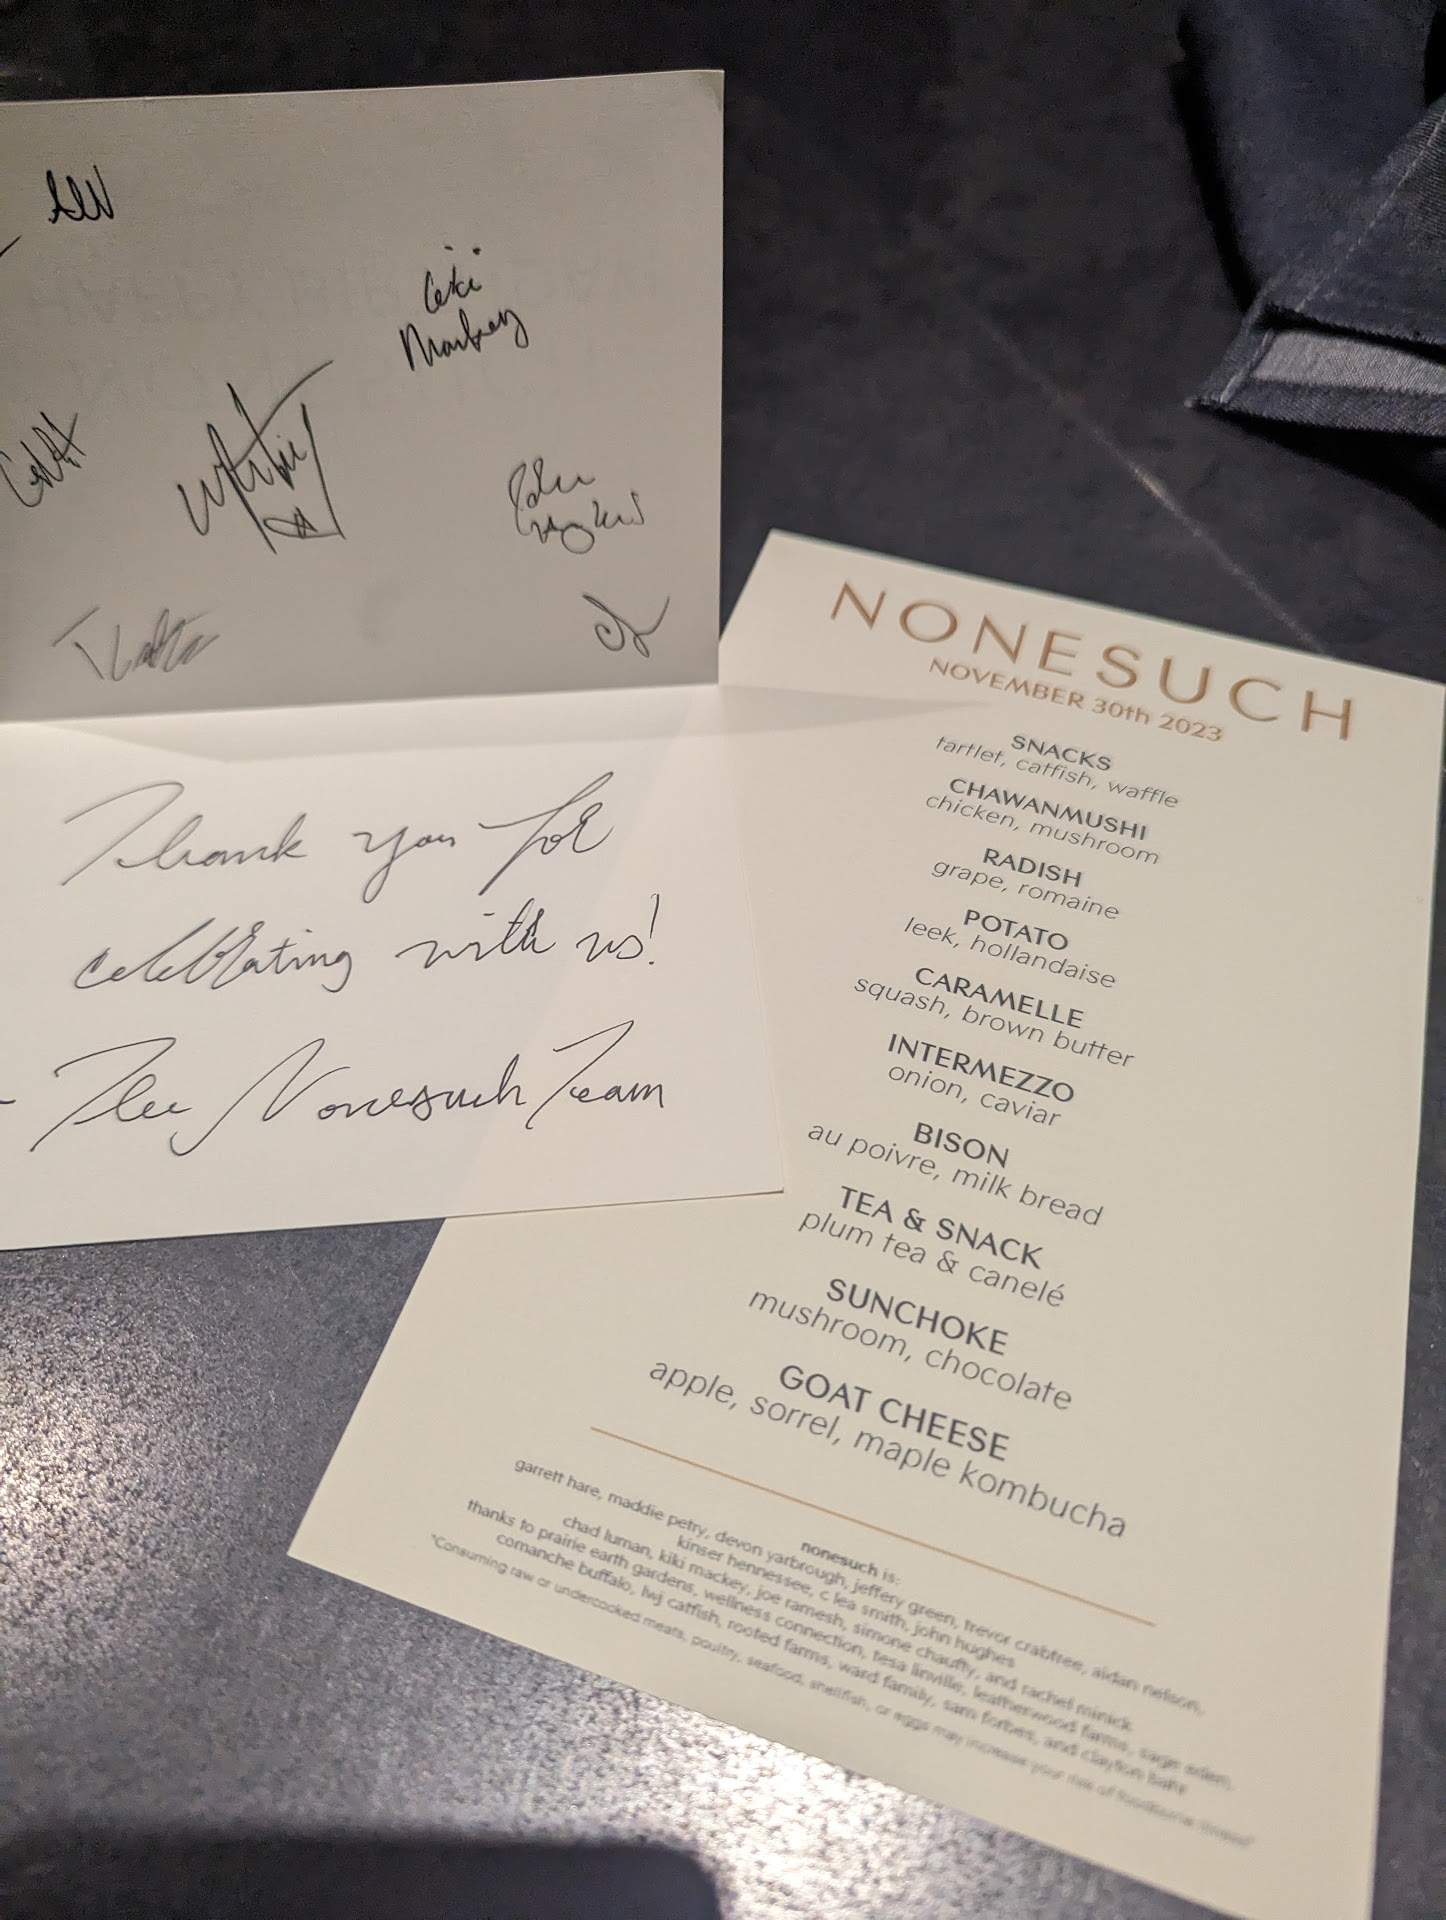 Kiki
Mackey
Thank you for
celebrating with us!
- The Nonesuch Team
NONESUCH
NOVEMBER 30th 2023
SNACKS
tartlet, catfish, waffle
CHAWANMUSHI
chicken, mushroom
RADISH
grape, romaine
POTATO
leek, hollandaise
CARAMELLE
squash, brown butter
INTERMEZZO
onion, caviar
BISON
au poivre, milk bread
TEA & SNACK
plum tea & canelé
SUNCHOKE
mushroom, chocolate
GOAT CHEESE
apple, sorrel, maple kombucha
nonesuch is:
garrett hare, maddie petry, devon yarbrough, jeffery green, trevor crabtree, aidan nelson,
kinser hennessee, c lea smith, john hughes
chad luman, kiki mackey, joe ramesh, simone chauffy, and rachel minick
thanks to prairie earth gardens, wellness connection, tesa linville, leatherwood farms, sage eden,
comanche buffalo, lwj catfish, rooted farms, ward family, sam forbes, and clayton bahr
*Consuming raw or undercooked meats, poultry, seafood, shellfish, or eggs may increase your risk of foodborne illness*